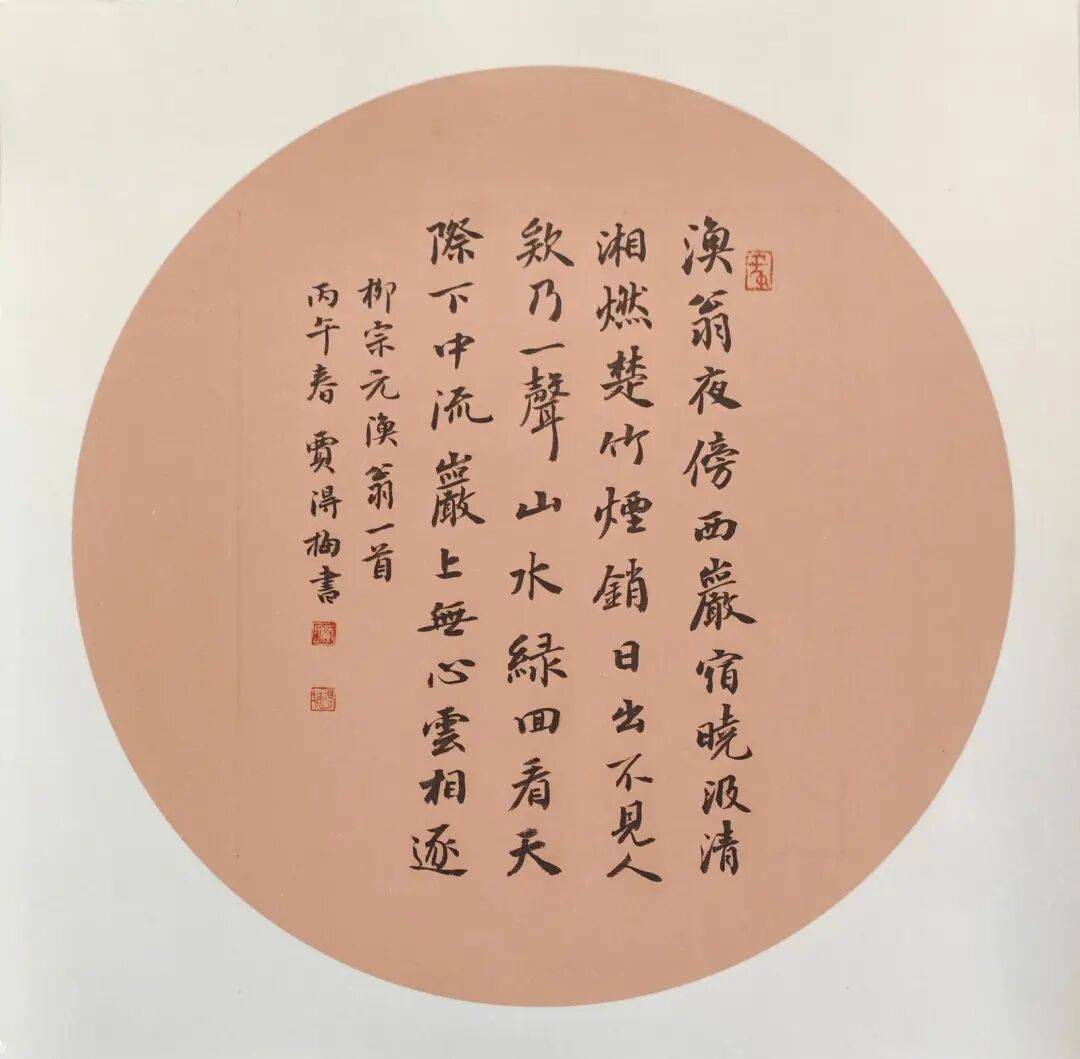 漁翁夜傍西巖宿曉汲清
湘燃楚竹煙銷日出不見人
欸乃一聲山水緑回看天
際下中流巖上無心雲相逐
柳宗元漁翁一首
丙午春 賈得梅書